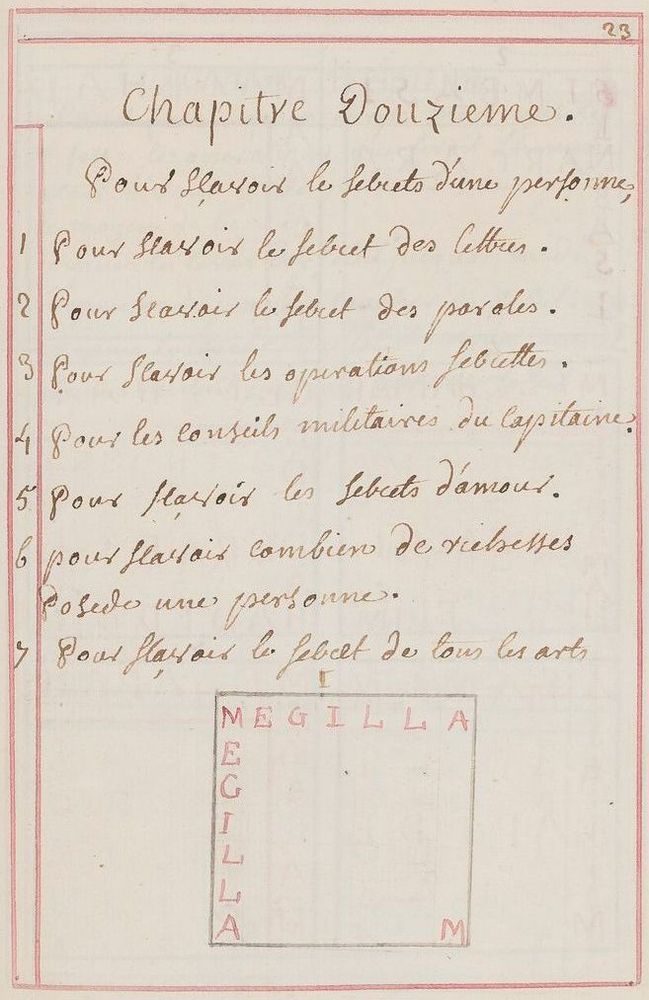 23
Chapitre Douzieme.
Pour sçavoir le secrets d'une personne,
1 Pour scavoir le secret des lettres.
2 Pour scavoir le secret des paroles.
3 Pour scavoir les operations secrettes.
4 Pour les conseils militaires du Capitaine.
5 Pour sçavoir les secrets d'amour.
6 pour scavoir combien de richesses
posede une personne.
7 Pour sçavoir le secret de tous les arts
I
MEGILLA
E
G
I
L
L
A M